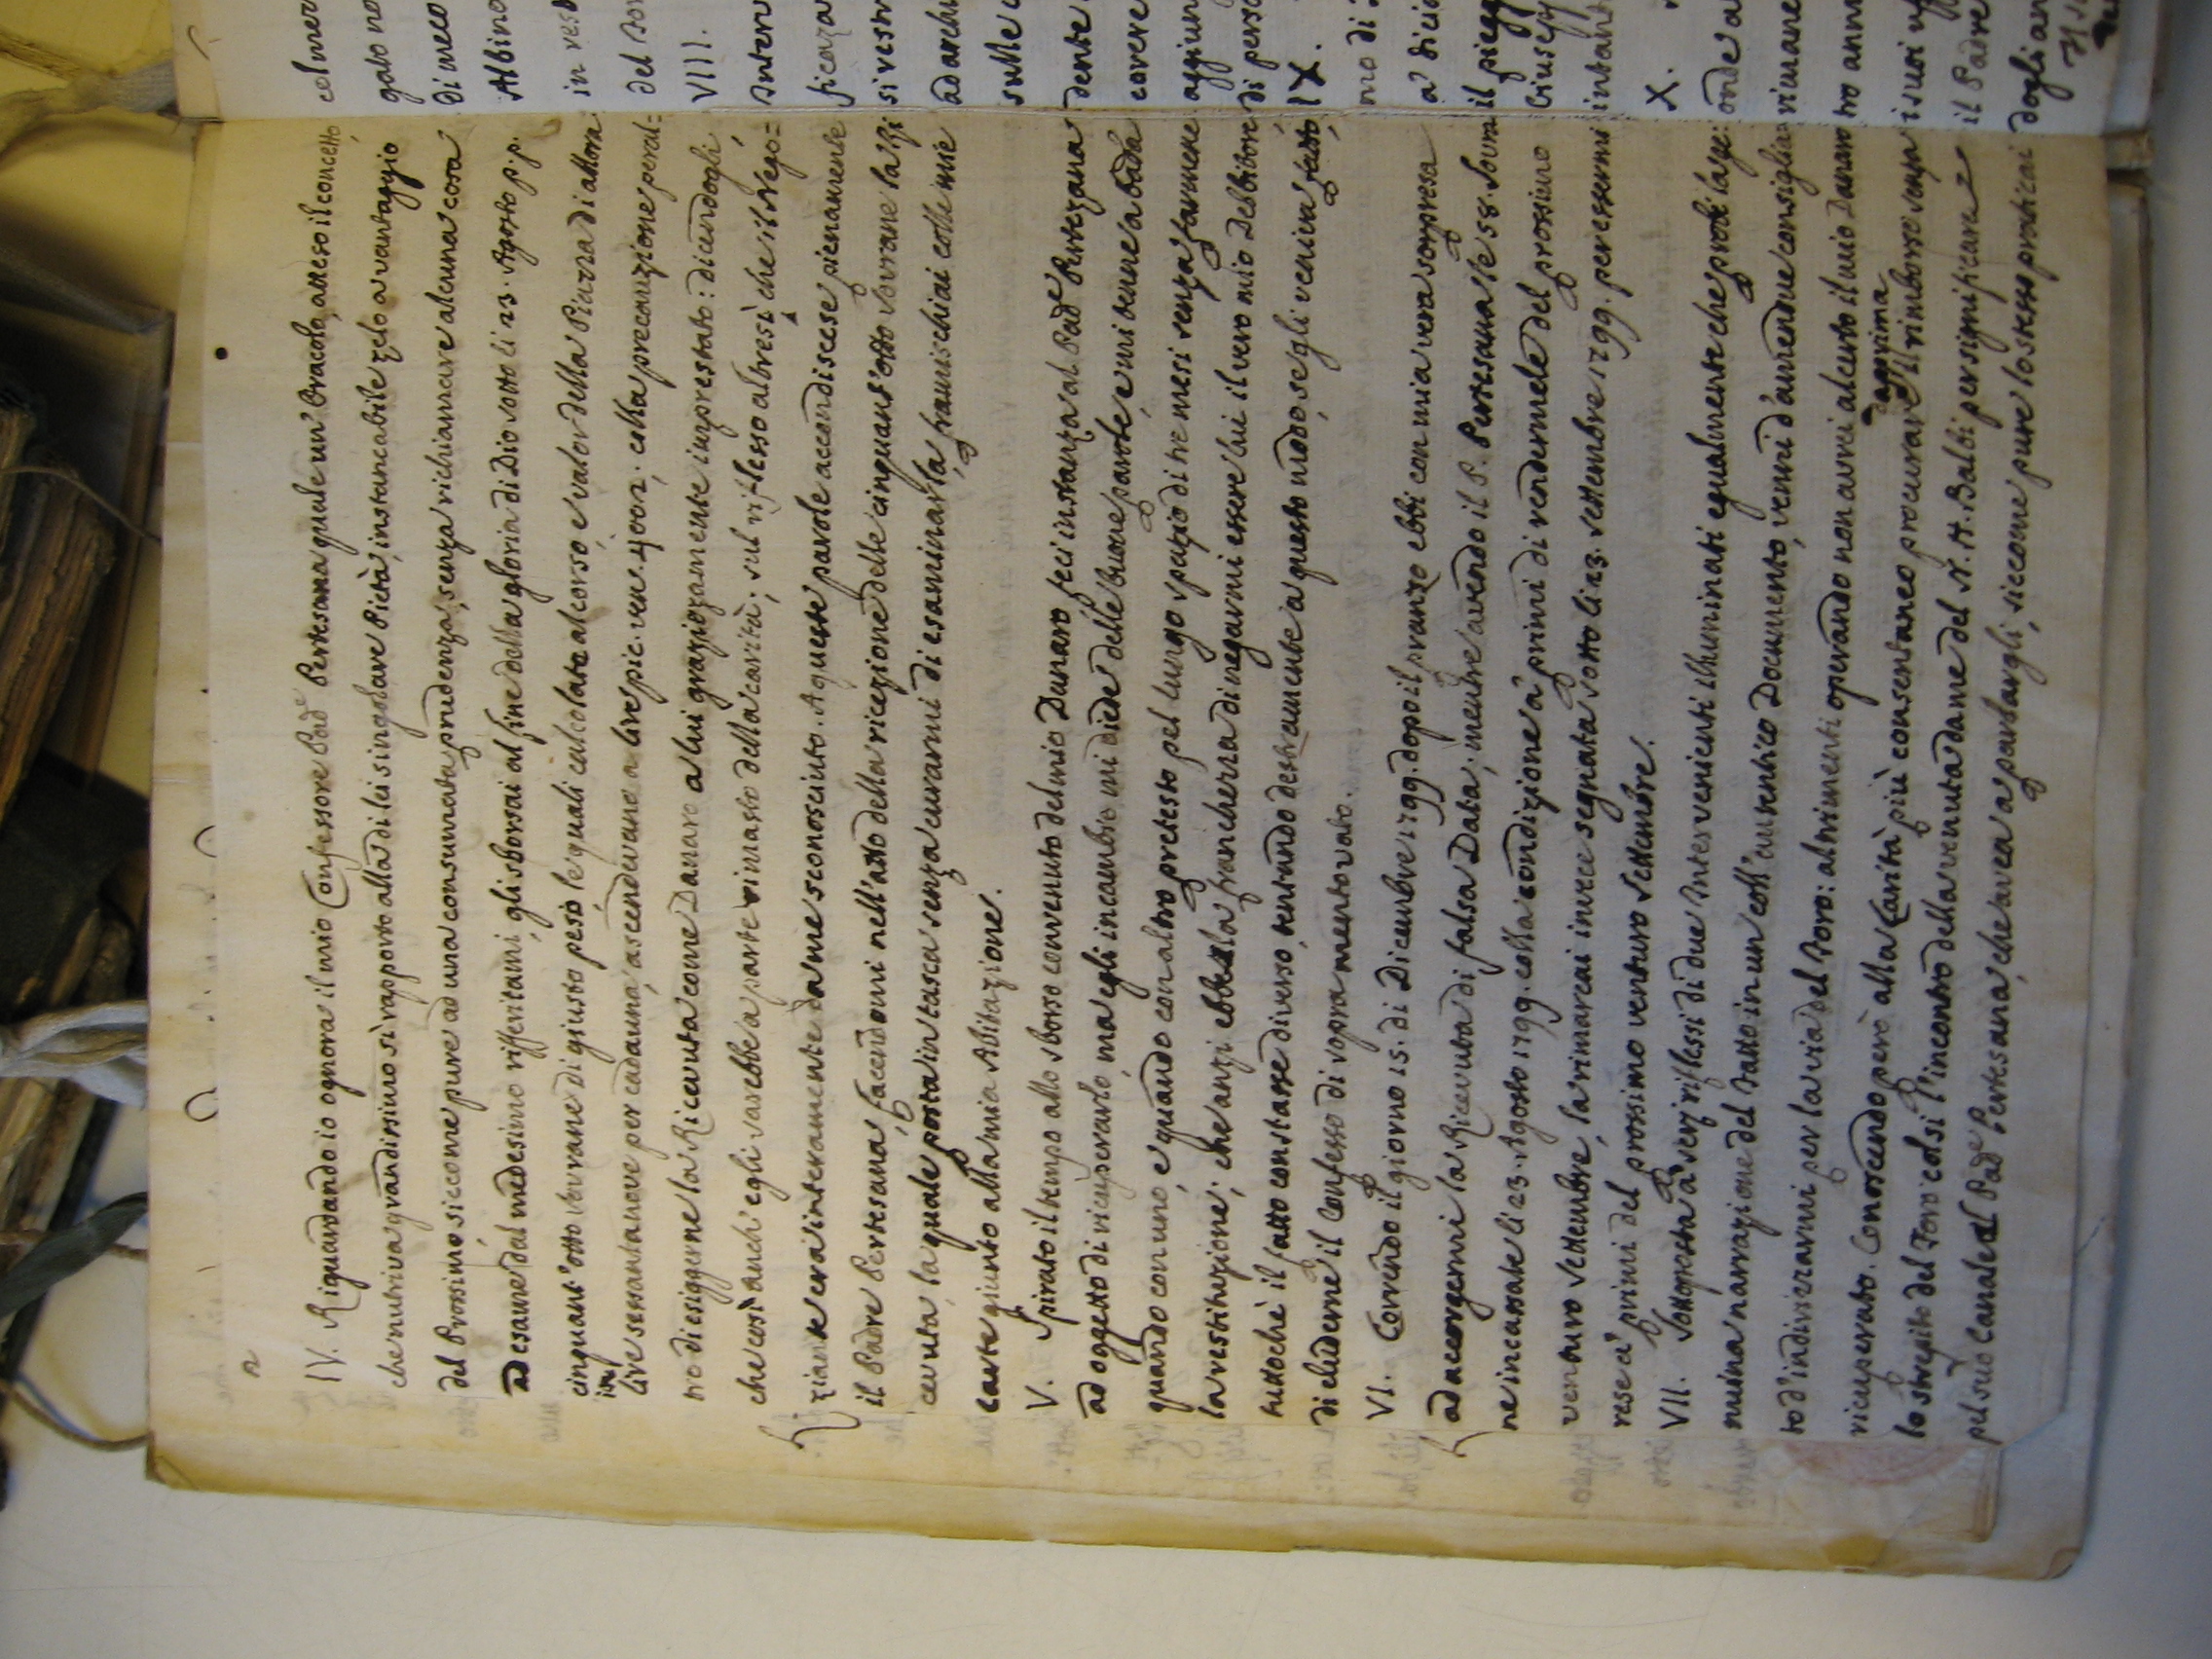 2
IV. Riguardando io ognora il mio Confessore Pad.e Pertesana quale un'Oracolo, atteso il concetto,
che nutriva grandissimo sì rapporto alla di lei singolare Pietà, instancabile zelo a vantaggio
del Prossimo, siccome pure ad una consumata prudenza, senza richiamare alcuna cosa
ad esame dal medesimo rifferitami, gli sborsai al fine della gloria di Dio sotto li 23. Agosto p.p.
cinquant'otto Sovrane di giusto peso, le quali calcolate al corso, e valor della Piazza di allora
in
lire sessantanove per cadauna, ascendevano a lire pic. ven. 4002; colla precauzione peral=
tro di esiggerne la Ricevuta come Danaro a lui graziozamente imprestato: dicendogli,
che così anch'egli sarebbe a parte rimasto della carità; sul riflesso altresì che il Nego=
ziante era intieramente da me sconosciuto. A queste parole accondiscese pienamente
il Padre Pertesana, facendomi nell'atto della ricezione delle cinquant'otto Sovrane la Ri
cevuta, la quale posta in tasca senza curarmi di esaminarla, framischiai colle mie
carte giunto alla mia Abitazione.
V. Spirato il tempo allo sborso convenuto del mio Danaro feci instanza al Pad.e Pertezana
ad oggetto di ricuperarlo, ma egli incambio mi diede delle buone parole, e mi tenne a bada
quando con uno, e quando con altro pretesto pel lungo spazio di tre mesi senza farmene
la restituzione; che anzi ebbe la franchezza di negarmi essere lui il vero mio Debbitore
tuttochè il fatto constasse diverso, tentando destramente a questo modo, se gli veniva fatto,
di eludere il Confesso di sopra mentovato.
VI. Correndo il giorno 15. di Dicembre 1799. dopo il pranzo ebbi con mia vera sorpresa
ad accorgermi la Ricevuta di falsa Data; mentre avendo il P. Pertesana le 58. Sovra
ne incassate li 23. Agosto 1799. colla condizione a' primi di rendermele del prossimo
venturo Settembre, la rimarcai invece segnata sotto li 23. Settembre 1799. per essermi
rese a' primi del prossimo venturo Settembre.
VII. Sottoposta a' seri riflessi di due Intervenienti illuminati egualmente che probi la ge:
nuina narrazione del Fatto in un coll'autentico Documento, venni d'amendue consiglia
to d'indirizzarmi per la via del Foro: altrimenti operando non avrei alcerto il mio Danaro
ricuperato. Conoscendo però alla Carità più consentaneo procurare il rimborso senza
dapprima
lo strepito del Foro colsi l'incontro della venuta dame del N. H. Balbi per significare
pel suo Canale al Pad.e Pertesana, che avea a parlargli, siccome pure lo stesso praticai
col mer
gato no
di meco
Albino
in vest
del Sov
VIII.
Interv
ficenza
si vestm
ad archi
sulle
dente
correre
aggiun
di perso
IX.
mo di
a' dicio
il piegg
Giuseff
intant
X.
onde a
rimane
tro ann
i suoi uf
il Padre
dogli an